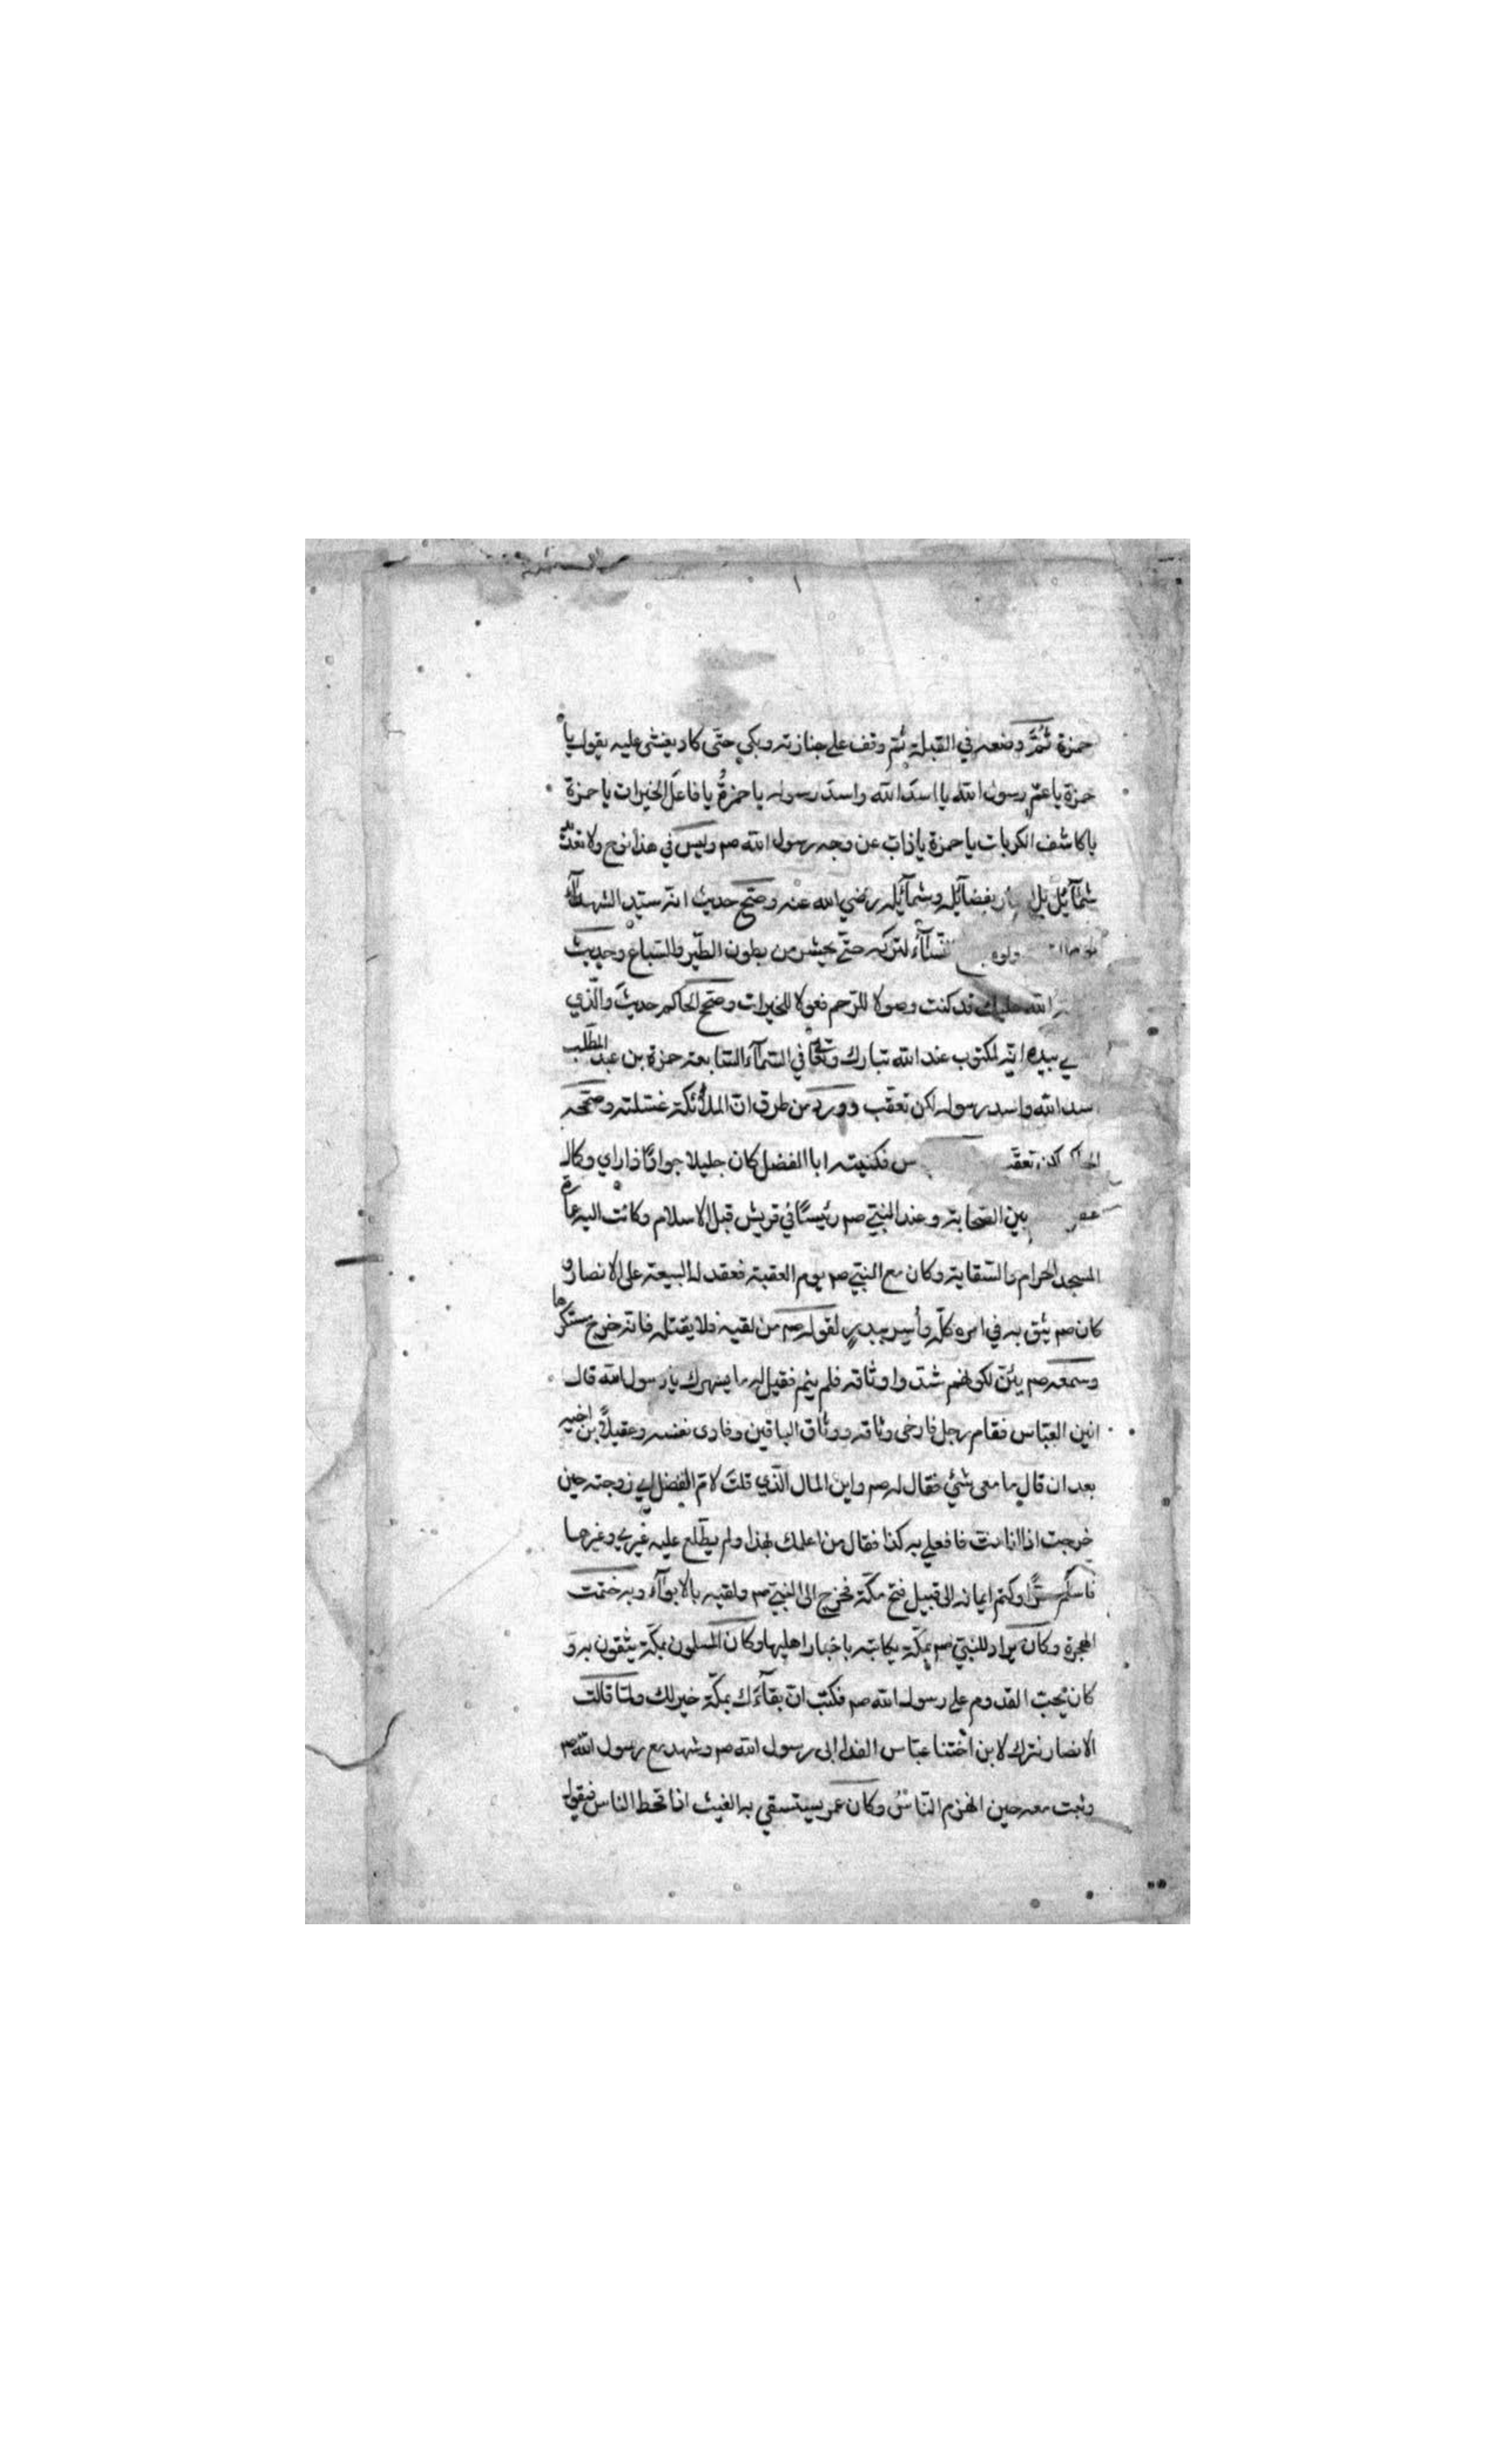 حمزة ثُمَّ وضعه في القبلة ثم وقف على جنازته وبكى حتّى كاد يغشى عليه يقول يا
حمزة يا عمّ رسول الله يا اسد الله واسد رسوله يا حمزةُ يا فاعل الخيرات يا حمزة
يا كاشف الكربات يا حمزة يا ذابّ عن وجه رسول الله صم وليس في هذا نوح ولا تعديد
شمآئل بل بفضآئله وشمآئله رضي الله عنه وصحّ حديث انّه سيّد الشهدآء
ولو النسآء لتركه حتّى يحشر من بطون الطّير والسّباع وحديث
الله عليك قد كنت وصولا للرّحم فعولا للخيرات وصحّح الحاكم حديث والّذي
بيده انّه لمكتوب عند الله تبارك وتعٰا في السّمآء السّابعة حمزة بن عبد المطّلب
اسد الله واسد رسوله لكن تعقّب وورد من طرق انّ الملائكة غسّلته وصحّحه
الحاكم لكن تعقّب س فكنيته ابا الفضل كان جليلا جوادًا ذا راي وكال
بين الصّحابة وعند النّبيّ صم رئيسًا في قريش قبل الاسلام وكانت اليه عمارة
المسجد الحرام والسّقاية وكان مع النّبيّ صم يوم العقبة فعقد له البيعة على الانصار و
كان صم يثق به في امره كلّه وأسر ببدرٍ لقوله صم من لقيه فلا يقتله فانه خرج مستكرها
وسمعه صم يئنّ لكونهم شدّوا وثاقه فلم ينم فقيل له ما يسهرك يا رسول الله قال
انين العبّاس فقام رجل فارخى وثاقه ووثاق الباقين وفادى نفسه وعقيلاً بن اخيه
بعد ان قال ما معى شئ فقال له صم واين المال الّذي قلت لامّ الفضل اي زوجته حين
خرجت اذا انا مت فافعلي به كذا فقال من اعلمك بهذا ولم يطّلع عليه غيري وغيرها
فاسلم سرًّا وكتم ايمانه الى قبيل فتح مكّة فخرج الى النّبيّ صم ولقيه بالابوآء وبه ختمت
الهجرة وكان يراد للنبيّ صم بمكّة يكاتبه باخبار اهليها وكان المسلمون بمكّة يثقون به و
كان يحبّ القدوم على رسول الله صم فكتب انّ بقآءك بمكّة خير لك ولمّا قالت
الانصار نترك لابن اختنا عبّاس الفدا ابى رسول الله صم وشهد مع رسول الله صم
وثبت معه حين انهزم النّاسُ وكان عمر يستسقي به الغيث اذا قحط الناس فيقول